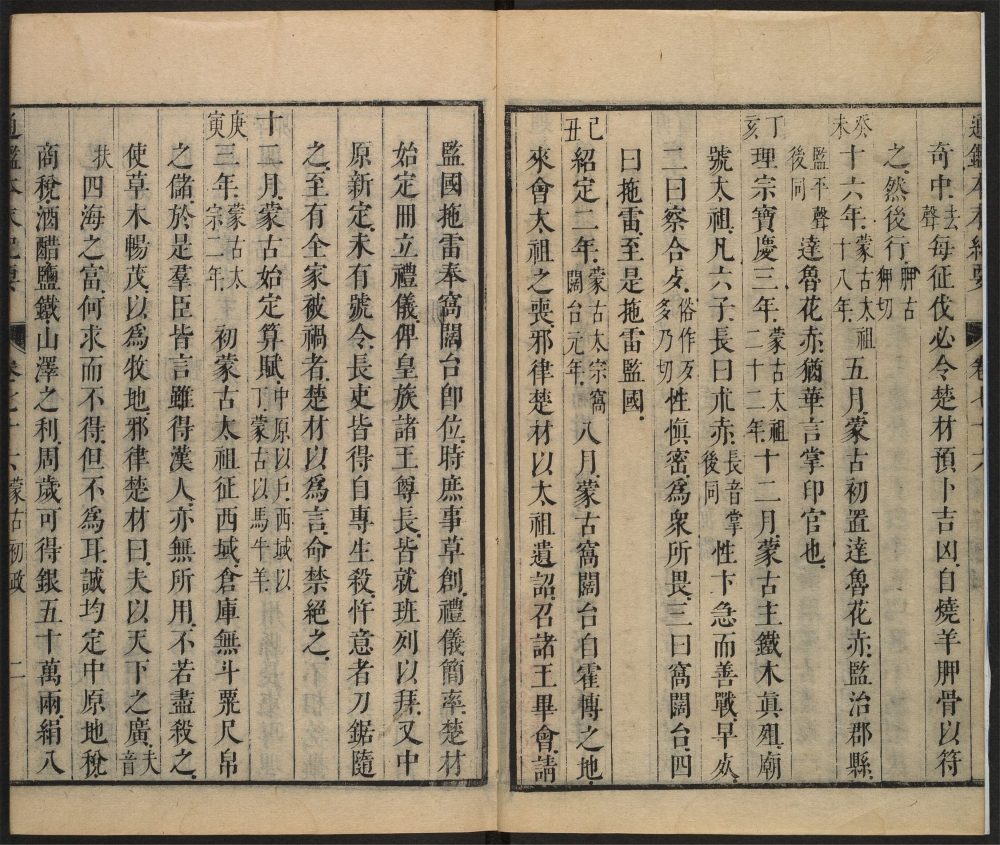 奇中去聲每征伐必令楚材預卜吉凶自燒羊胛骨以符
之然後行胛古狎切
癸未十六年蒙古太祖十八年五月蒙古初置達魯花赤監治郡縣
監平聲後同達魯花赤猶華言掌印官也
丁亥理宗寶慶三年蒙古太祖二十二年十二月蒙古主鐵木真殂廟
號太祖凡六子長曰朮赤長音掌後同性卞急而善戰早歿
二曰察合歹俗作歹多乃切性慎密為衆所畏三曰窩闊台四
曰拖雷至是拖雷監國
己丑紹定二年蒙古太宗窩闊台元年八月蒙古窩闊台自霍博之地
來會太祖之喪邪律楚材以太祖遺詔召諸王畢會請
監國拖雷奉窩闊台卽位時庶事草創禮儀簡率楚材
始定冊立禮儀俾皇族諸王尊長皆就班列以拜又中
原新定未有號令長吏皆得自專生殺忤意者刀鋸隨
之至有全家被禍者楚材以為言命禁絕之
十二月蒙古始定算賦中原以戶西域以丁蒙古以馬牛羊
庚寅三年蒙古太宗二年初蒙古太祖征西域倉庫無斗粟尺帛
之儲於是羣臣皆言雖得漢人亦無所用不若盡殺之
使草木暢茂以為牧地邪律楚材曰夫以天下之廣夫音
扶四海之富何求而不得但不為耳誠均定中原地稅
商稅酒醋鹽鐵山澤之利周歲可得銀五十萬兩絹八
蒙古初政 二